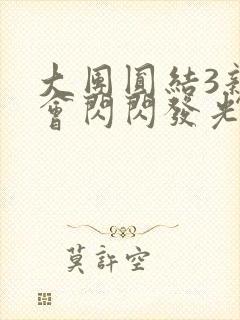 大團圓結3新
會閃閃發光
莫許空